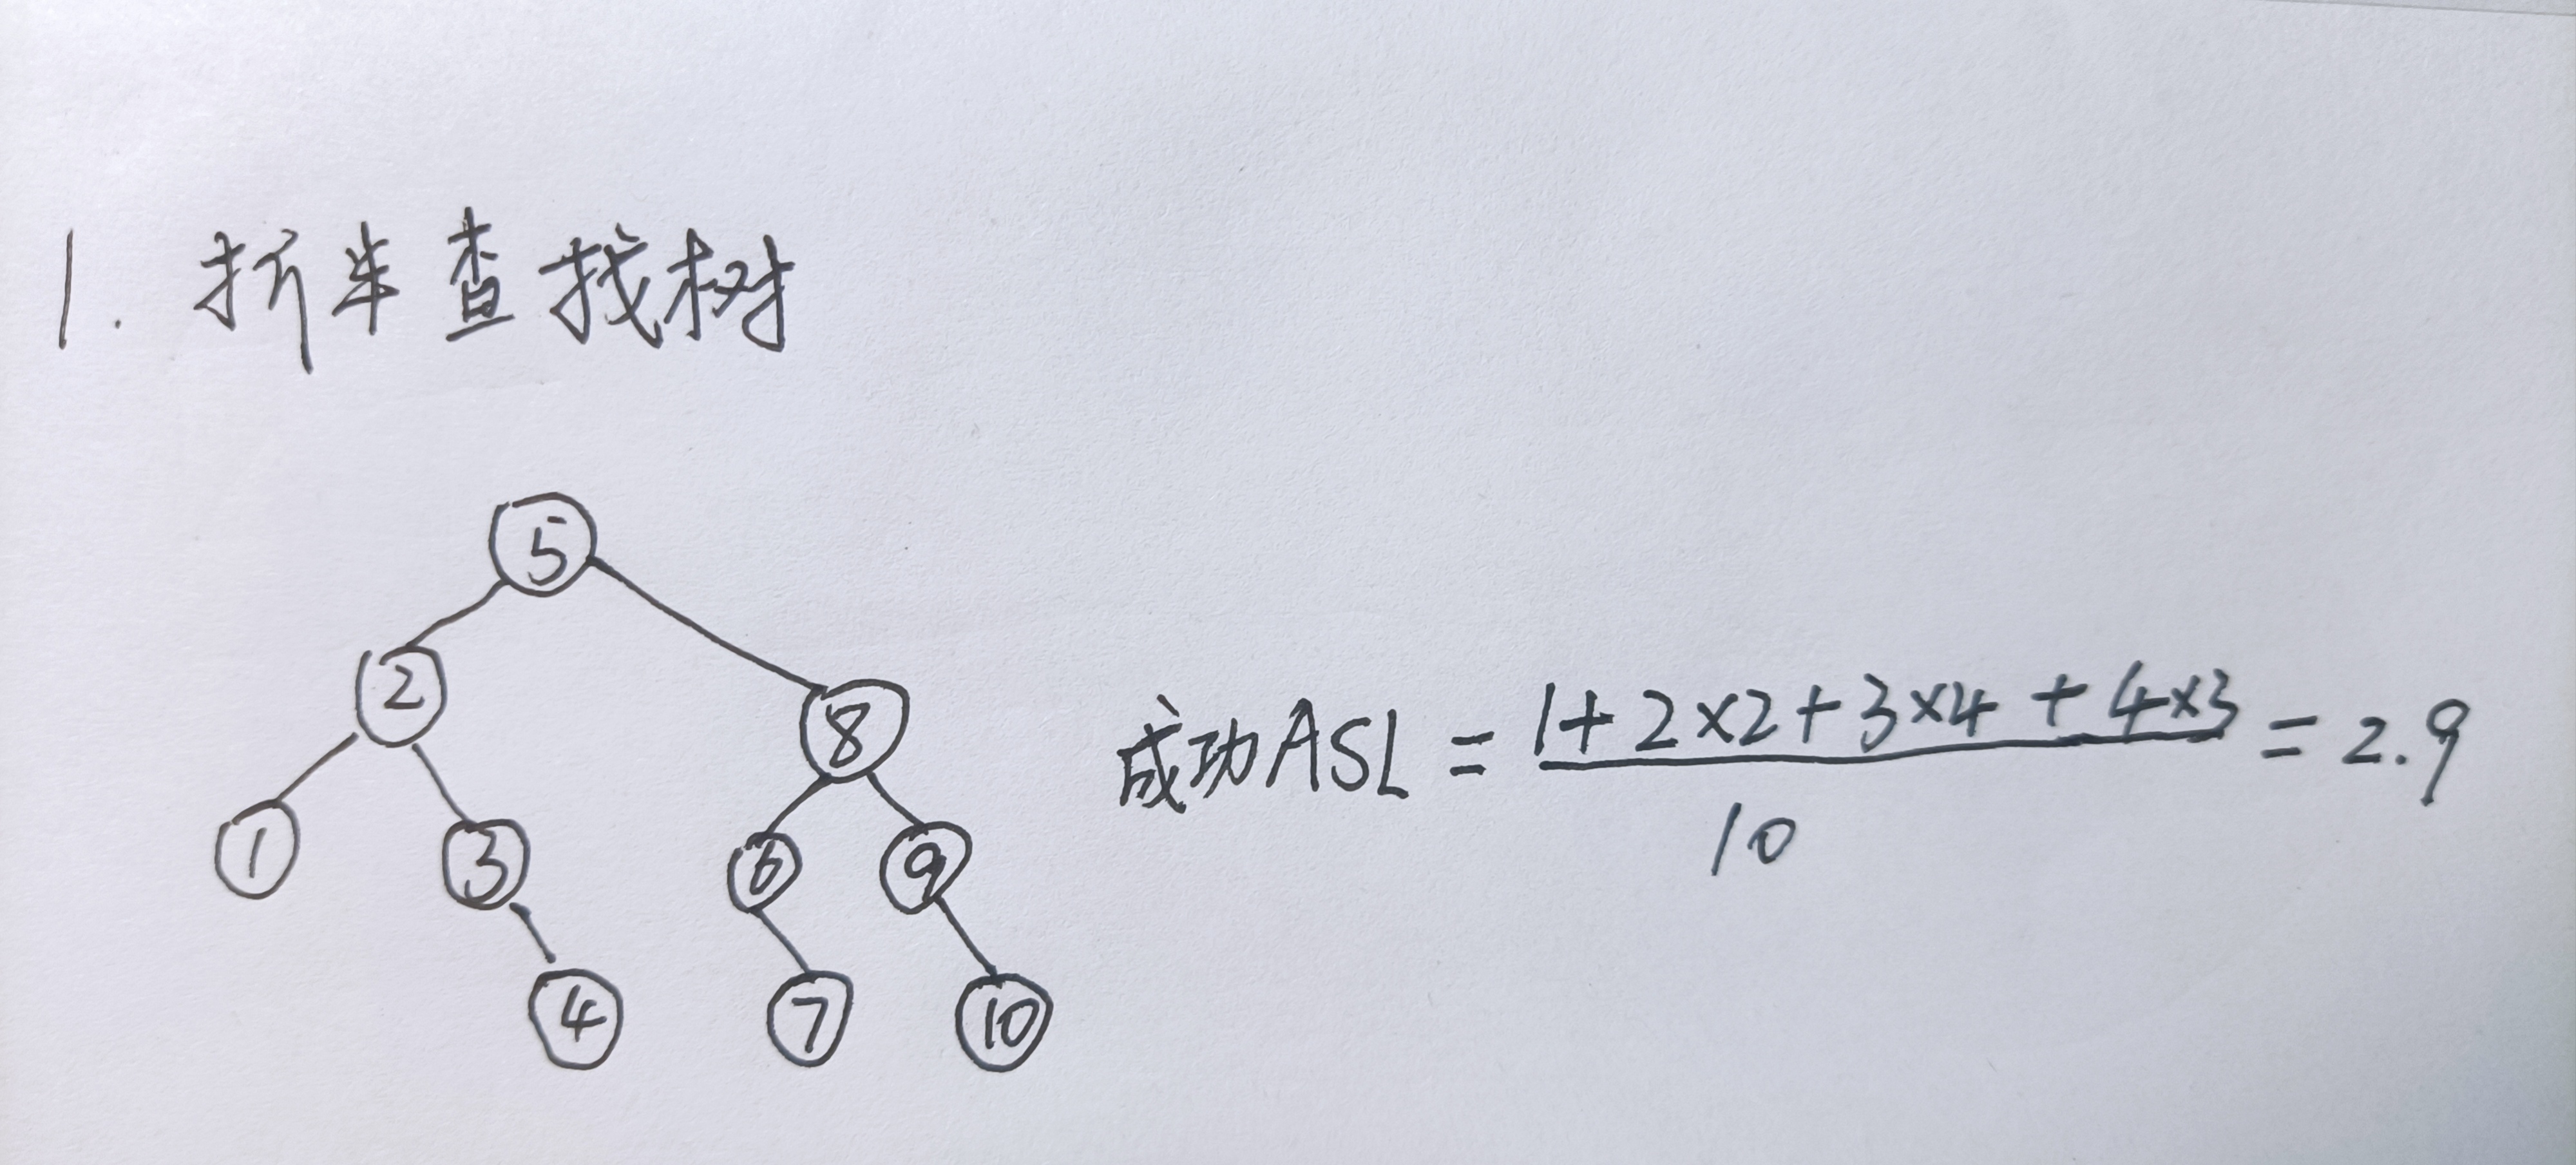 1. 折半查找树
5
2
8
1
3
6
9
4
7
10
成功ASL = 1+2×2+3×4+4×3 / 10 = 2.9